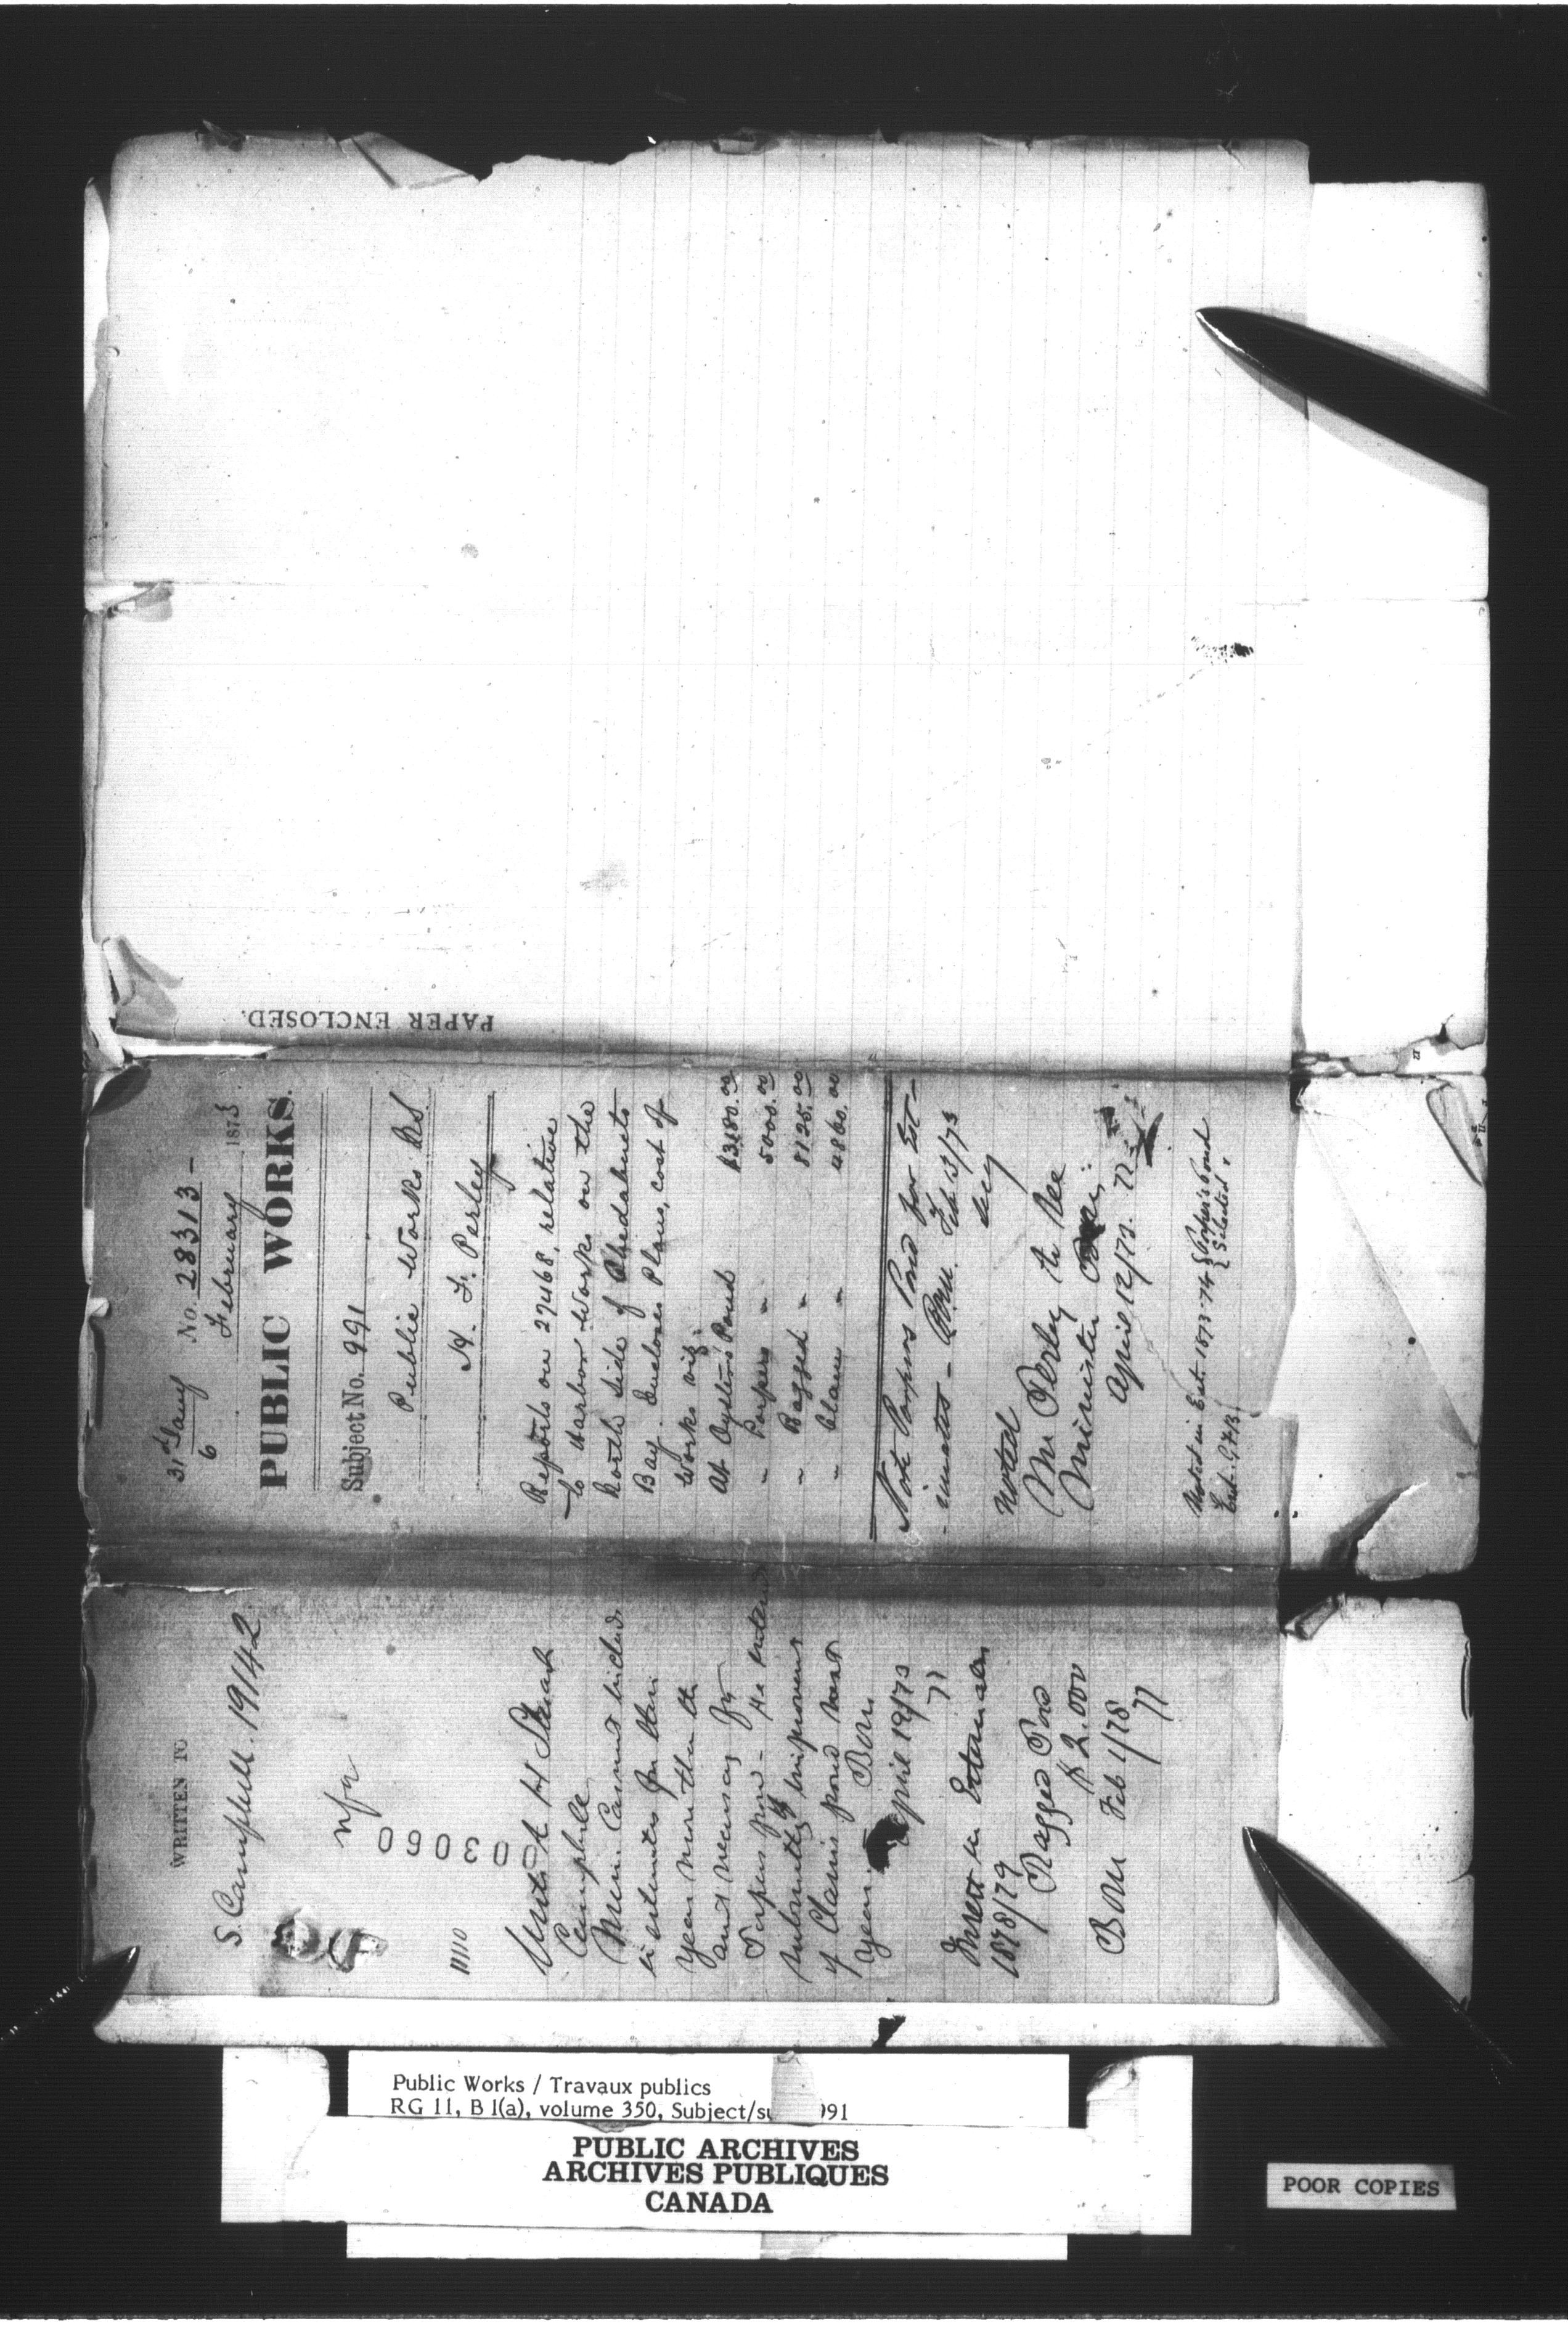 PAPER ENCLOSED.
31st Jany
6
No. 28313 -
February 1873
PUBLIC WORKS.
Subject No. 991
Public Works
H. F. Perley
Reports on 27468, relative
to Harbor Works on the
North Side of Chedabucto
Bay. Encloses Plans, cost of
works viz:
At Oysters Pond $3180.00
" Porpers " 5000.00
" Ragged " 8125.00
" Clam " 4860.00
Note Porpers Pond for Est-
-imates - Feb 13/73
Noted
Mr Perley to see
Minister
April 12/73.
Noted in Est. 1873-74 { Porper's Pond
{ Selected.
WRITTEN TO
S. Campbell. 19142
nfa
03060
11110
Write to
Campbell
Min. Cannot include
in estimates for this
year more than the
amt necessary for
Porpers pond - He intends
submitting improvement
of Clam pond next
year.
April 12/73
Insert in Estimates
1878/79
Ragged Pond
$2.000
Feb 1/78
Public Works / Travaux publics
RG 11, B 1(a), volume 350, Subject/su 991
PUBLIC ARCHIVES
ARCHIVES PUBLIQUES
CANADA
POOR COPIES